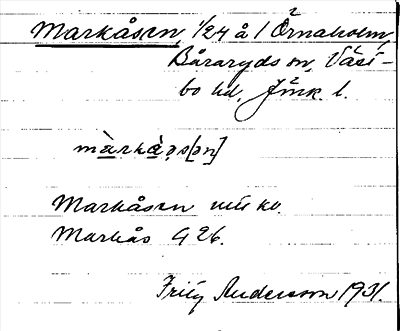 Markåsen, 1/24 å 1 Örnaholm,
Båraryds sn, Västbo hd, Jönk. l.
màrkà̩s[ən]
Markåsen
Markås G 26.
Fritz Andersson 1931.